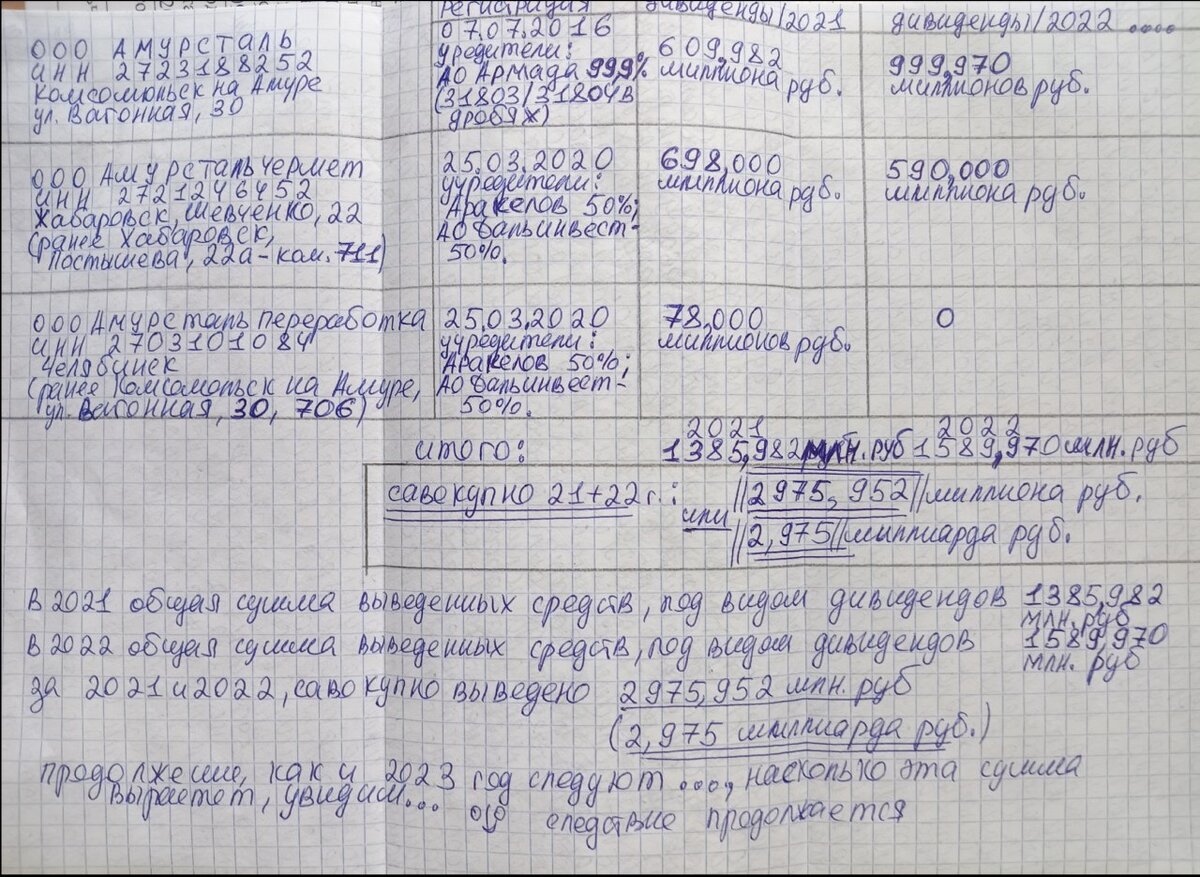 регистрация дивиденды/2021 дивиденды/2022 ....
ООО АМУРСТАЛЬ
ИНН 2723188252
Комсомольск на Амуре
ул. Вагонная, 30
07.07.2016
уредители:
АО Армада 99,9%
(31803/31804 в
дробях)
609,982
миллиона руб.
999,970
миллионов руб.
ООО Амурстальчермет
ИНН 2721246452
Хабаровск, Шевченко, 22
(ранее Хабаровск,
Постышева, 22а-ком. 711)
25.03.2020
уучредители:
Аракелов 50%;
АО Дальинвест-
50%.
698,000
миллиона руб.
590,000
миллиона руб.
ООО Амурсталь переработка
ИНН 2703101084
Челябинск
(ранее Комсомольск на Амуре,
ул. Вагонная, 30, 706)
25.03.2020
уучредители:
Аракелов 50%;
АО Дальинвест-
50%.
78,000
миллионов руб.
0
2021 2022
итого: 1385,982 млн. руб 1589,970 млн. руб
савекупно 21+22 г.: ||2975,952|| миллиона руб.
или ||2,975|| миллиарда руб.
В 2021 общая сумма выведенных средств, под видом дивидендов 1385,982
млн. руб
В 2022 общая сумма выведенных средств, под видом дивидендов 1589,970
млн. руб
за 2021 и 2022, савокупно выведено 2975,952 млн. руб
(2,975 миллиарда руб.)
продолжение, как и 2023 год следуют ...., насколько эта сумма
вырастет, увидим...
следствие продолжается